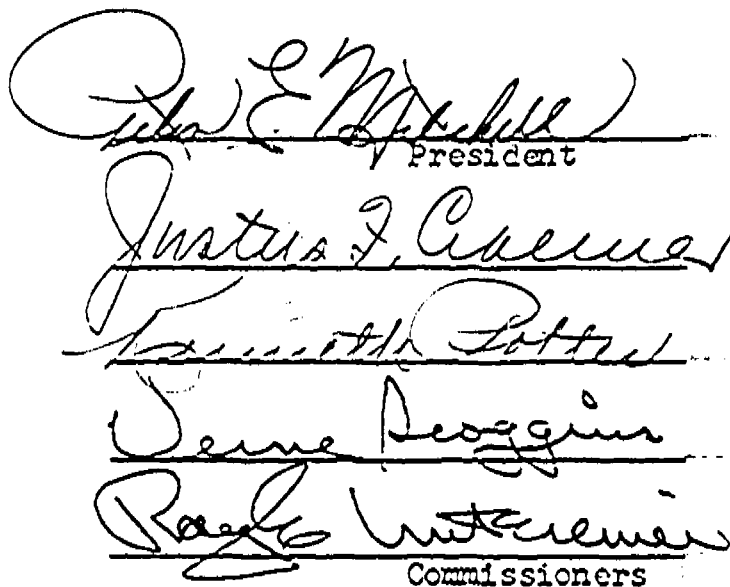 Peter E. Mitchell
President
Justus F. Craemer
Kenneth Potter
Verne Scoggins
Ray E. Untereiner
Commissioners